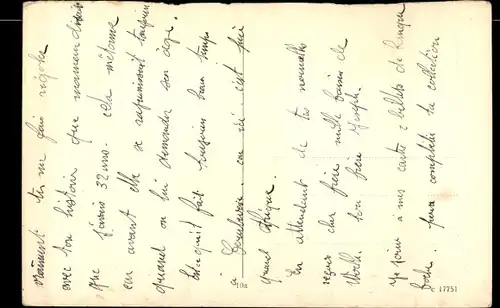 vraiment tu me fais rigoler
avec ton histoire que maman disait
que j'avais 32 ans. cela m'étonne
car avant elle se rajeunissait toujours
quand on lui demandait son âge.
Est-ce qu'il fait toujours beau temps
à car ici c'est fini
quand
En attendant de tes nouvelles
reçois cher frère mille baisers de
ton frère Joseph.
Je joins à mes cartes 2 billets de
pour compléter ta collection
10a
c 17751